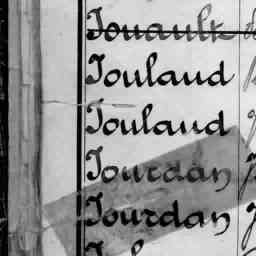 Jouault
Jouland
Jouland
Jourdan
Jourdan